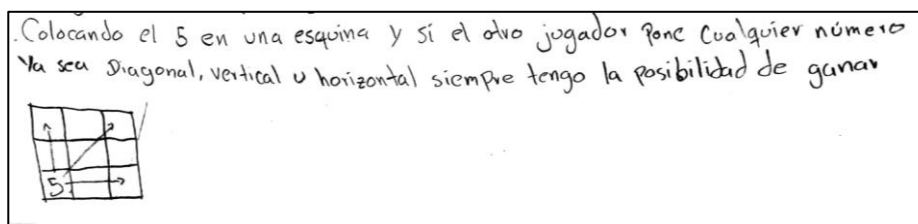 .Colocando el 5 en una esquina y si el otro jugador pone cualquier número
Ya sea Diagonal, vertical u horizontal siempre tengo la posibilidad de ganar
5